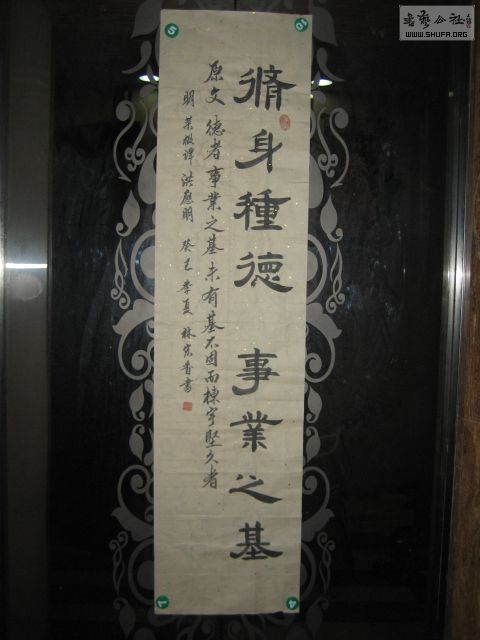 脩身種德 事業之基
原文 德者事業之基未有基不固而棟宇堅久者
明 菜根譚 洪應明 癸巳季夏 林宏書
書藝公社
WWW.SHUFA.ORG
5
10
1
4